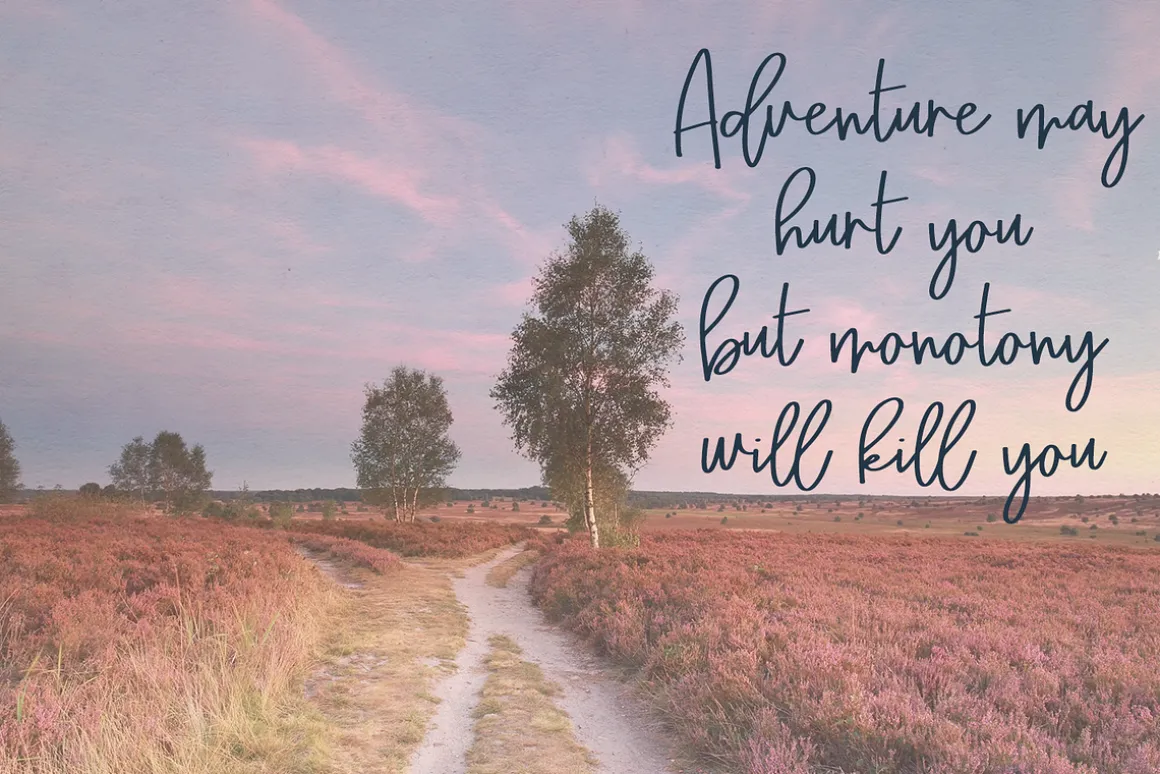 Adventure may
hurt you
but monotony
will kill you